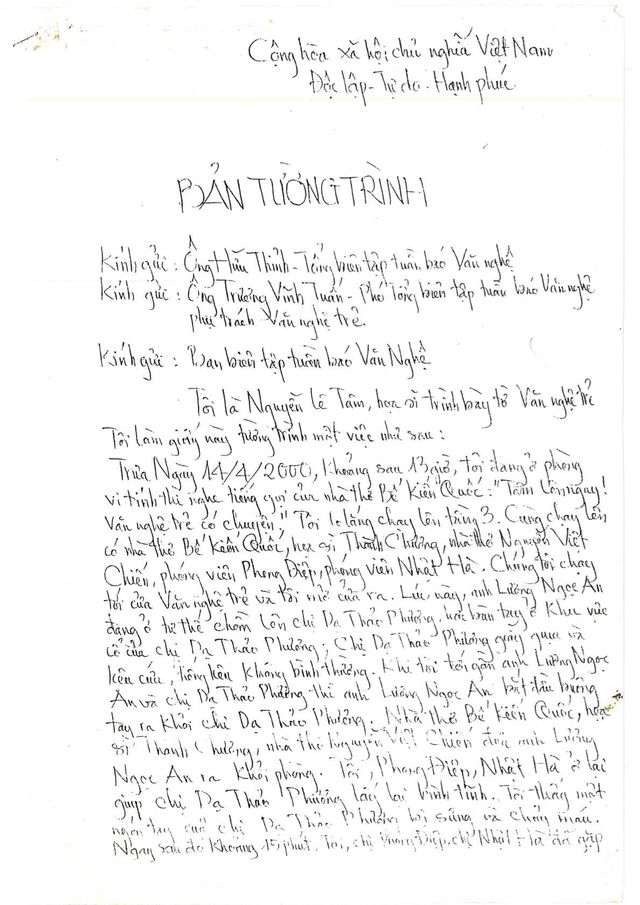 Cộng hòa xã hội chủ nghĩa Việt Nam
Độc lập - Tự do - Hạnh phúc
BẢN TƯỜNG TRÌNH
Kính gửi : Ông Hữu Thỉnh - Tổng biên tập tuần báo Văn nghệ
Kính gửi : Ông Trương Vĩnh Tuấn - Phó Tổng biên tập tuần báo Văn nghệ
phụ trách Văn nghệ trẻ.
Kính gửi : Ban biên tập tuần báo Văn Nghệ
Tôi là Nguyễn Lê Tâm, họa sĩ trình bày tờ Văn nghệ trẻ
Tôi làm giấy này tường trình một việc như sau :
Trưa Ngày 14/4/2000, Khoảng sau 13 giờ, tôi đang ở phòng
vi tính thì nghe tiếng gọi của nhà thơ Bế Kiến Quốc : "Tâm lên ngay!
Văn nghệ trẻ có chuyện." Tôi lo lắng chạy lên tầng 3. Cùng chạy lên
có nhà thơ Bế Kiến Quốc, họa sĩ Thành Chương, nhà thơ Nguyễn Việt
Chiến, phóng viên Phong Điệp, phóng viên Nhật Hà. Chúng tôi chạy
tới cửa Văn nghệ trẻ và tôi mở cửa ra. Lúc này, anh Lương Ngọc An
đang ở tư thế chồm lên chị Dạ Thảo Phương, hai bàn tay ở khu vực
cổ của chị Dạ Thảo Phương; Chị Dạ Thảo Phương giãy giụa và
kêu cứu, tiếng kêu không bình thường. Khi tôi tới gần anh Lương Ngọc
An và chị Dạ Thảo Phương thì anh Lương Ngọc An bắt đầu buông
tay ra khỏi chị Dạ Thảo Phương. Nhà thơ Bế Kiến Quốc, họa
sĩ Thành Chương, nhà thơ Nguyễn Việt Chiến đưa anh Lương
Ngọc An ra khỏi phòng. Tôi, Phong Điệp, Nhật Hà ở lại
giúp chị Dạ Thảo Phương lấy lại bình tĩnh. Tôi thấy một
ngón tay của chị Dạ Thảo Phương bị sưng và chảy máu.
Ngay sau đó khoảng 15 phút, Tôi, chị Phong Điệp, chị Nhật Hà đã gặp